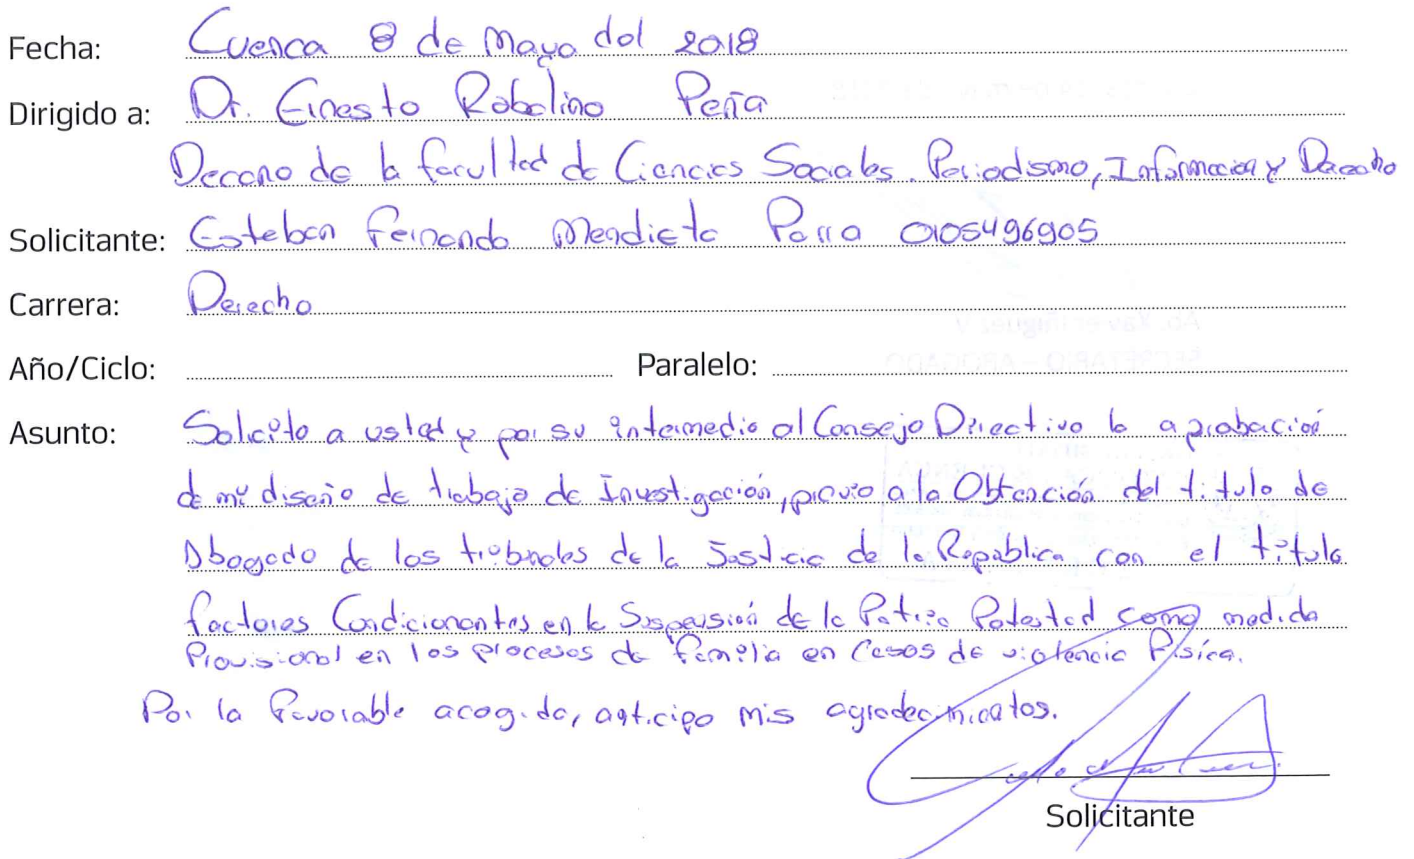 Fecha: Cuenca 8 de Mayo del 2018
Dirigido a: Dr. Ernesto Robalino Peña
Decano de la facultad de Ciencias Sociales. Periodismo, Informacion y Derecho
Solicitante: Esteban Fernando Mendieta Parra 0105496905
Carrera: Derecho
Año/Ciclo: Paralelo:
Asunto: Solicito a usted y por su intermedio al Consejo Directivo la aprobación
de mi diseño de trabajo de Investigación, previo a la Obtención del titulo de
Abogado de los tribunales de la Justicia de la República con el titulo
factores Condicionantes en la Suspensión de la Patria Potestad como medida
Provisional en los procesos de familia en Casos de violencia Física.
Por la favorable acogida, anticipo mis agradecimientos.
Solicitante